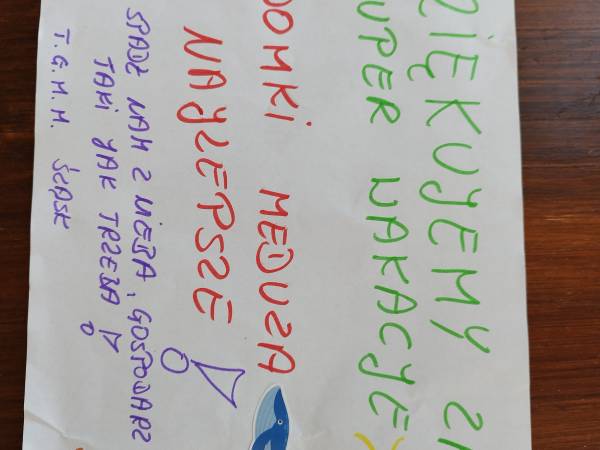 ZIĘKUJEMY ZA
UPER WAKACJE
DOMKI MEDUZA
NAJLEPSZE!
SPADŁ NAM Z NIEBA, GOSPODARZ
TAKI JAK TRZEBA!
T.G.M.M. ŚLĄSK